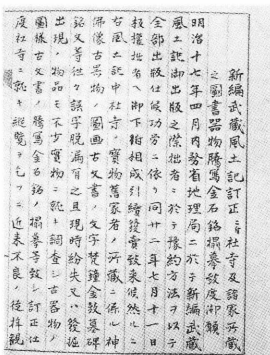 新編武蔵風土記訂正ニ付社寺及諸家所蔵
之圖書器物謄寫金石銘搨摹等致度御願
明治十七年四月内務省地理局ニ於テ新編武蔵
風土記御出版之際拙者ニ於テ豫約方法ヲ以テ
全部出版仕候功労ニ依リ同廿二年七月十一日
板權拙者ヘ御下賜相成引續發賣致来候然ルニ
古風土記中社寺ノ寶物舊家者ノ所蔵ニ係ル神
佛像古器物ノ圖画古文書ノ文字梵鐘金鼓墓碑
銘文等往々誤字脱漏有之且現時紛失又ハ發掘
出現ノ物品モ不少實物ニ就キ調査シ古器物ノ
圖様古文書ノ謄寫金石銘ノ搨摹等致シ訂正仕
度社寺ニ就キ巡覧ヲ乞フニ近来不良ノ徒拝観